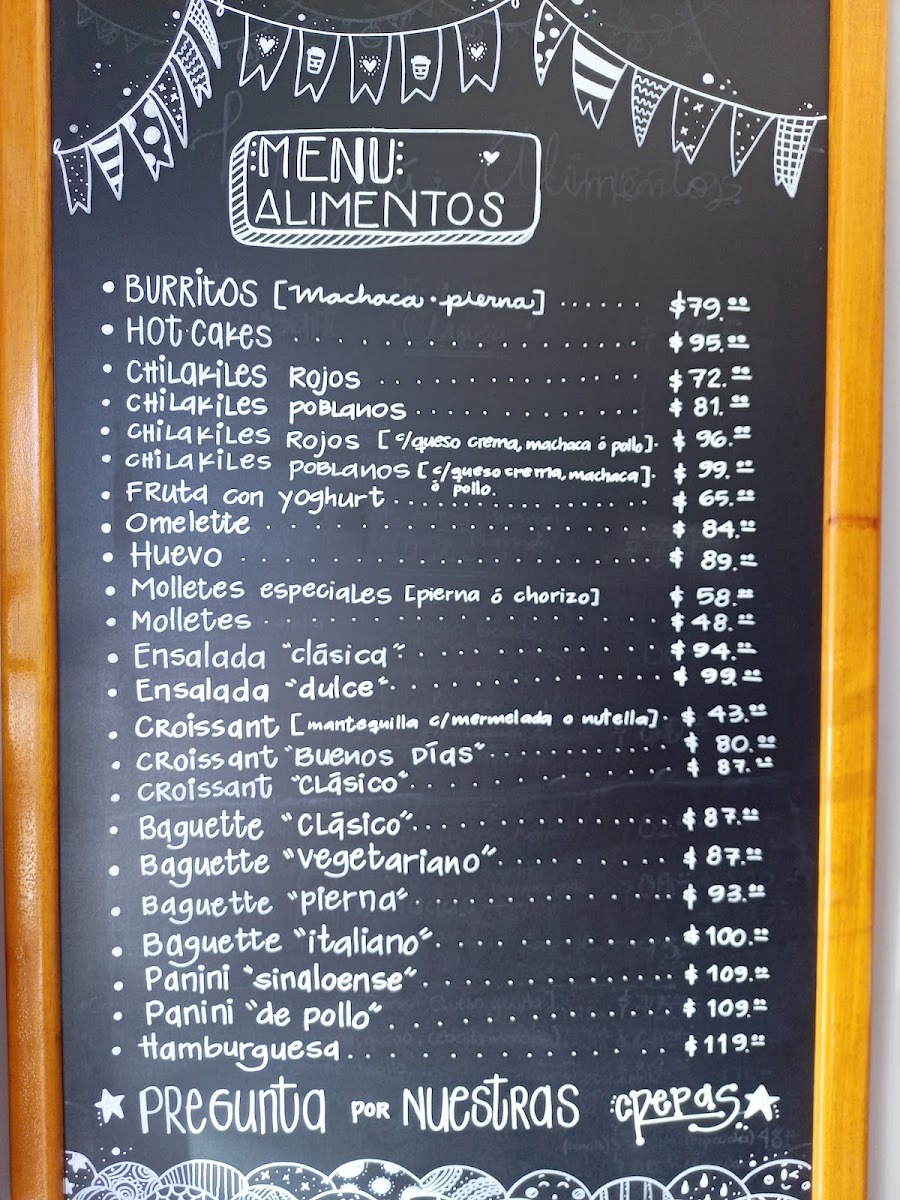 MENU
ALIMENTOS
• BURRITOS [Machaca · pierna] ...... $79.00
• HOT·CAKES ...... $95.00
• CHILAKILES ROJOS ...... $72.00
• CHILAKILES POBLANOS ...... $81.00
• CHILAKILES ROJOS [c/queso crema, machaca ó pollo]. $96.00
• CHILAKILES POBLANOS [c/queso crema, machaca]. $99.00
ó pollo.
• FRUTA CON YOGHURT ...... $65.00
• OMELETTE ...... $84.00
• HUEVO ...... $89.00
• Molletes especiales [pierna ó chorizo] $58.00
• Molletes ...... $48.00
• Ensalada "clásica" ...... $94.00
• Ensalada "dulce" ...... $99.00
• CROISSANT [mantequilla c/mermelada o nutella]. $43.00
• CROISSANT "BUENOS DÍAS" ...... $80.00
• CROISSANT "CLÁSICO" ...... $87.00
• Baguette "CLÁSICO" ...... $87.00
• Baguette "vegetariano" ...... $87.00
• Baguette "pierna" ...... $93.00
• Baguette "italiano" ...... $100.00
• Panini "sinaloense" ...... $109.00
• Panini "de pollo" ...... $109.00
• Hamburguesa ...... $119.00
PREGUNTA POR NUESTRAS crepas